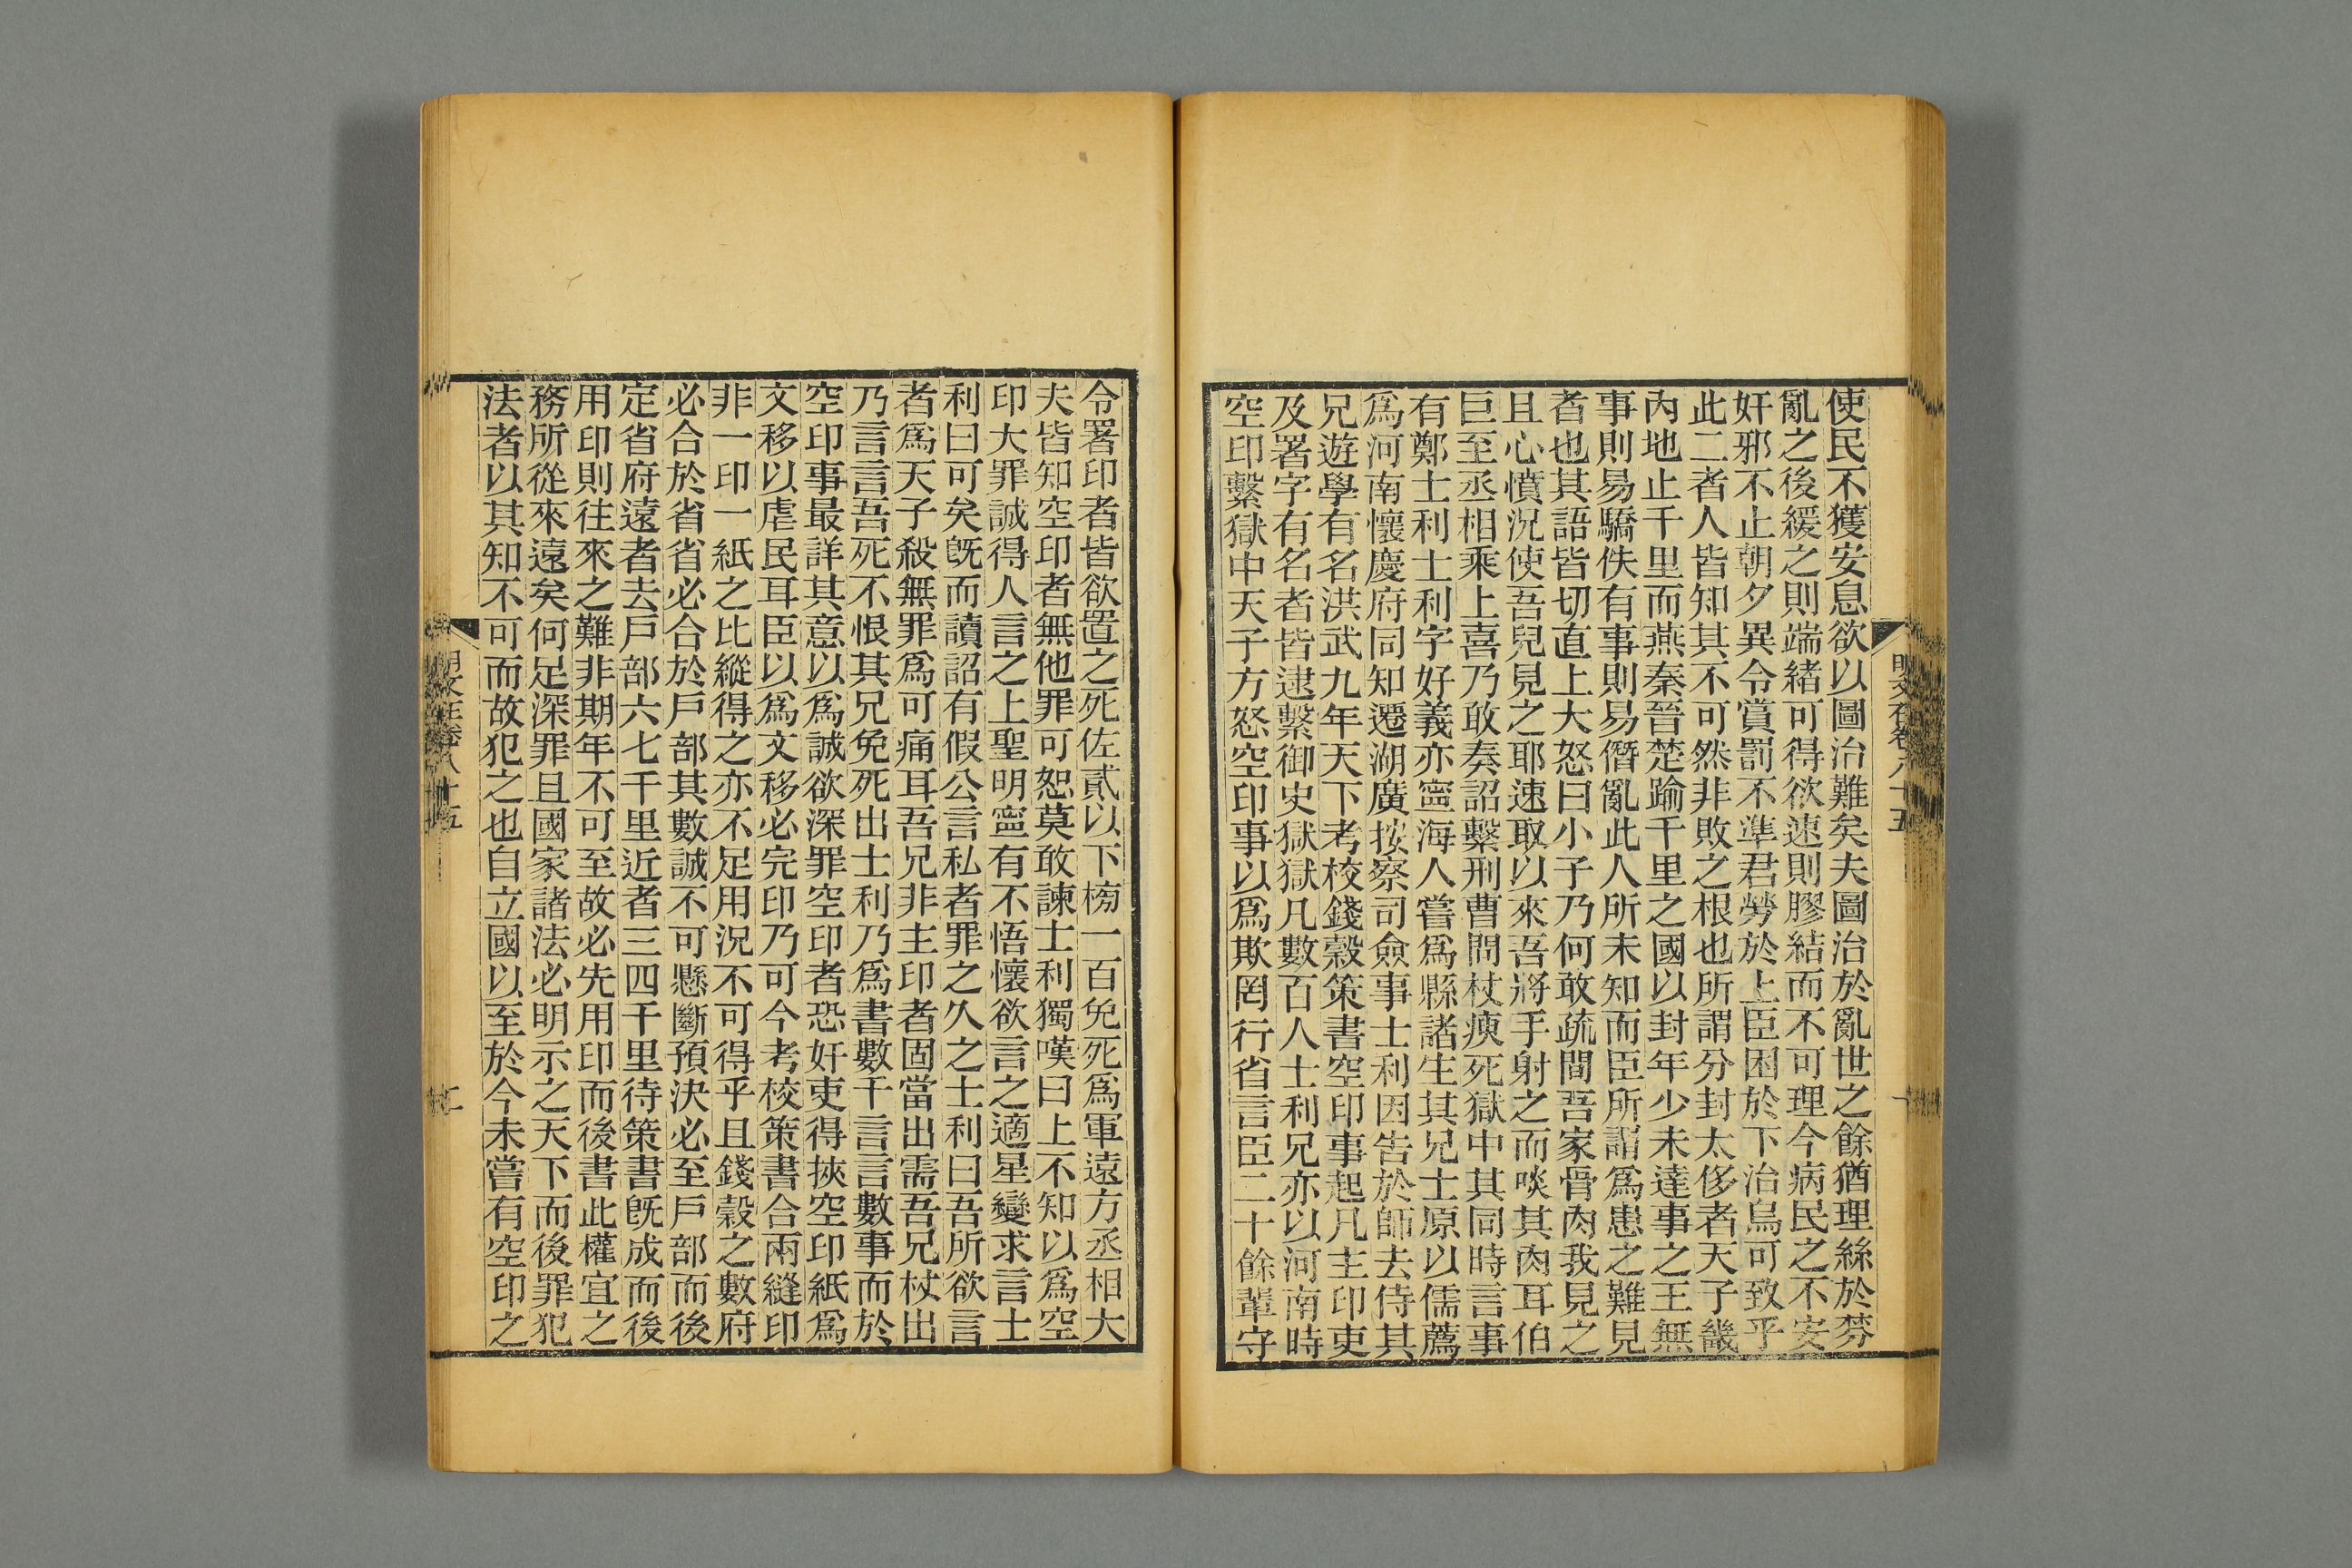 使民不獲安息欲以圖治難矣夫圖治於亂世之餘猶理絲於棼
亂之後緩之則端緒可得欲速則膠結而不可理今病民之不安
奸邪不止朝夕異令賞罰不準君勞於上臣困於下治烏可致乎
此二者人皆知其不可然非敗之根也所謂分封太侈者天子畿
內地止千里而燕秦晉楚踰千里之國以封年少未達事之王無
事則易驕佚有事則易僭亂此人所未知而臣所謂爲患之難見
者也其語皆切直上大怒曰小子乃何敢疏間吾家骨肉我見之
且心憤況使吾兒見之耶速取以來吾將手射之而啖其肉耳伯
巨至丞相乘上喜乃敢奏詔繫刑曹問杖瘐死獄中其同時言事
有鄭士利士利字好義亦寧海人嘗爲縣諸生其兄士原以儒薦
爲河南懷慶府同知遷湖廣按察司僉事士利因告於師去侍其
兄遊學有名洪武九年天下考校錢穀策書空印事起凡主印吏
及署字有名者皆逮繫御史獄獄凡數百人士利兄亦以河南時
空印繫獄中天子方怒空印事以爲欺罔行省言臣二十餘輩守
明文在卷八十五
一
令署印者皆欲置之死佐貳以下榜一百免死爲軍遠方丞相大
夫皆知空印者無他罪可恕莫敢諫士利獨嘆曰上不知以爲空
印大罪誠得人言之上聖明寧有不悟懷欲言之適星變求言士
利曰可矣旣而讀詔有假公言私者罪之久之士利曰吾所欲言
者爲天子殺無罪爲可痛耳吾兄非主印者固當出需吾兄杖出
乃言言吾死不恨其兄免死出士利乃爲書數千言言數事而於
空印事最詳其意以爲誠欲深罪空印者恐奸吏得挾空印紙爲
文移以虐民耳臣以爲文移必完印乃可今考校策書合兩縫印
非一印一紙之比縱得之亦不足用況不可得乎且錢穀之數府
必合於省省必合於戶部其數誠不可懸斷預決必至戶部而後
定省府遠者去戶部六七千里近者三四千里待策書旣成而後
用印則往來之難非期年不可至故必先用印而後書此權宜之
務所從來遠矣何足深罪且國家諸法必明示之天下而後罪犯
法者以其知不可而故犯之也自立國以至於今未嘗有空印之
明文在卷八十五